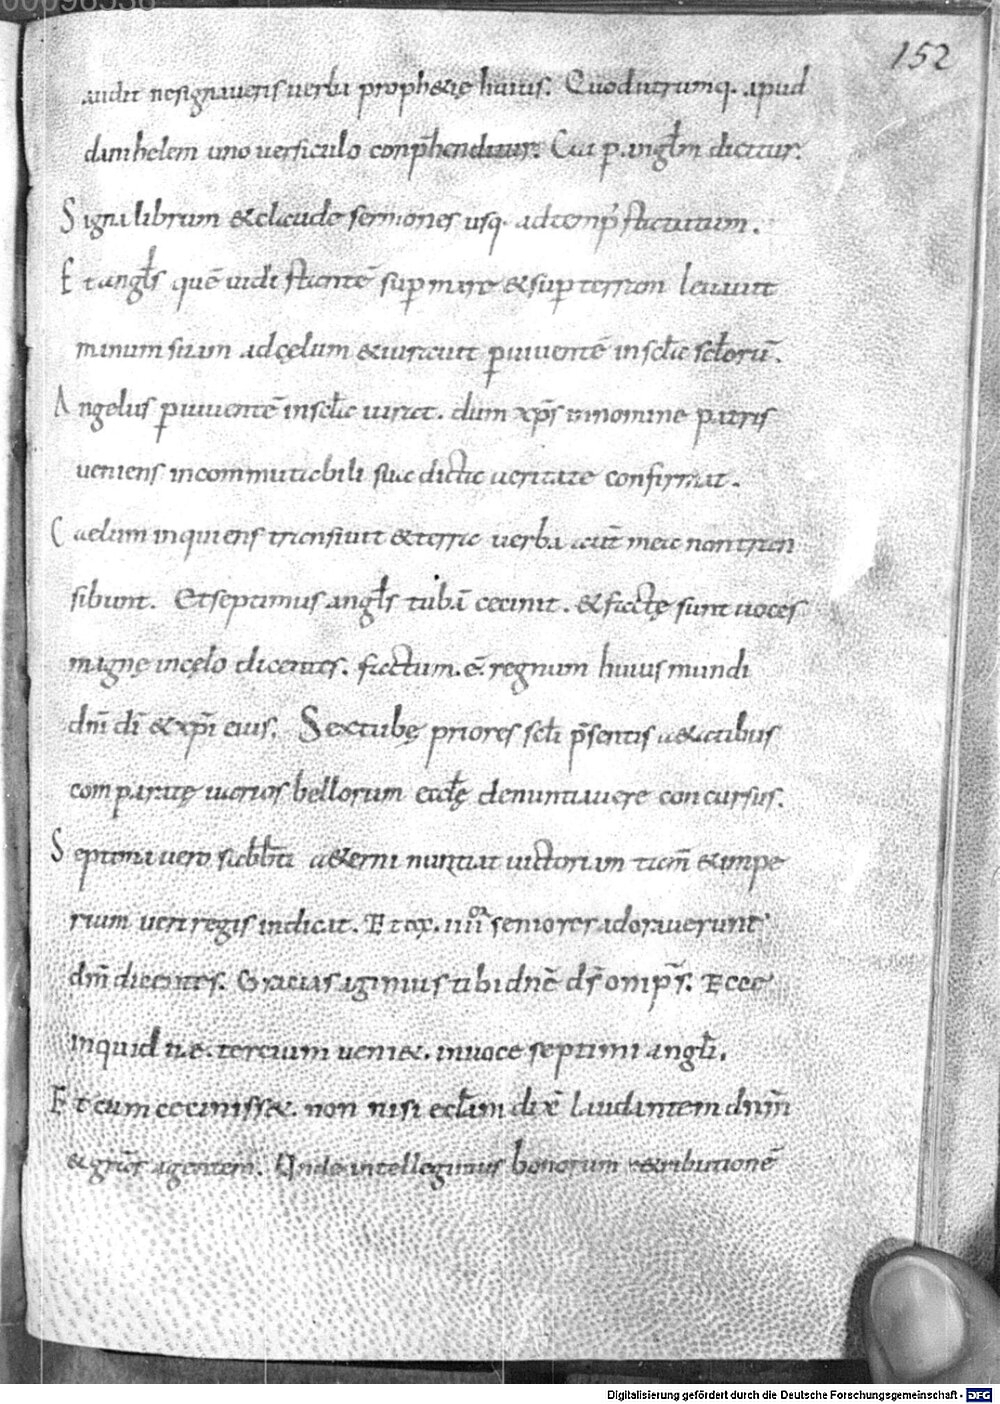 00096538
152
audit ne signaveris verba prophetię huius. Quod utrumq. apud
danihelem uno versiculo conp̄henditur. Cui p. angl̄m dicitur.
Signa librum & claude sermones usq. ad temp᾽ statutum.
Et angl̄s quē vidi stantē sup mare & sup terram levavit
manum suam ad cęlum & iuravit p viventē in scl̄a scl̄orū.
Angelus p viventē in scl̄a iurat. dum xp̄s in nomine patris
veniens incommutabili sua dicta veritate confirmat.
Caelum inquiens transivit & terra verba aūt mea non tran
sibunt. Et septimus angl̄s tubā cecinit. & factę sunt voces
magnę in cęlo dicentes. factum. ē. regnum huius mundi
dn̄i dī & xp̄i eius. Sex tubę priores scl̄i p̄sentis aetatibus
comparatę varios bellorum eccl̄ę denuntiavere concursus.
Septima vero sabb̄ti aeterni nuntia victoriam tam̄ & impe
rium veri regis indicat. Et xx. iiiior seniores adoraverunt
dn̄m dicentes. Gracias agimus tibi dn̄e d̄s omp̄s. Ecce
inquid ue. tercium veniet. in voce septimi angl̄i.
Et cum cecinisset. non nisi eccl̄am dix̄ laudantem dn̄m
& gr̄as agentem. Unde intellegimus bonorum retributionē
Digitalisierung gefördert durch die Deutsche Forschungsgemeinschaft - DFG